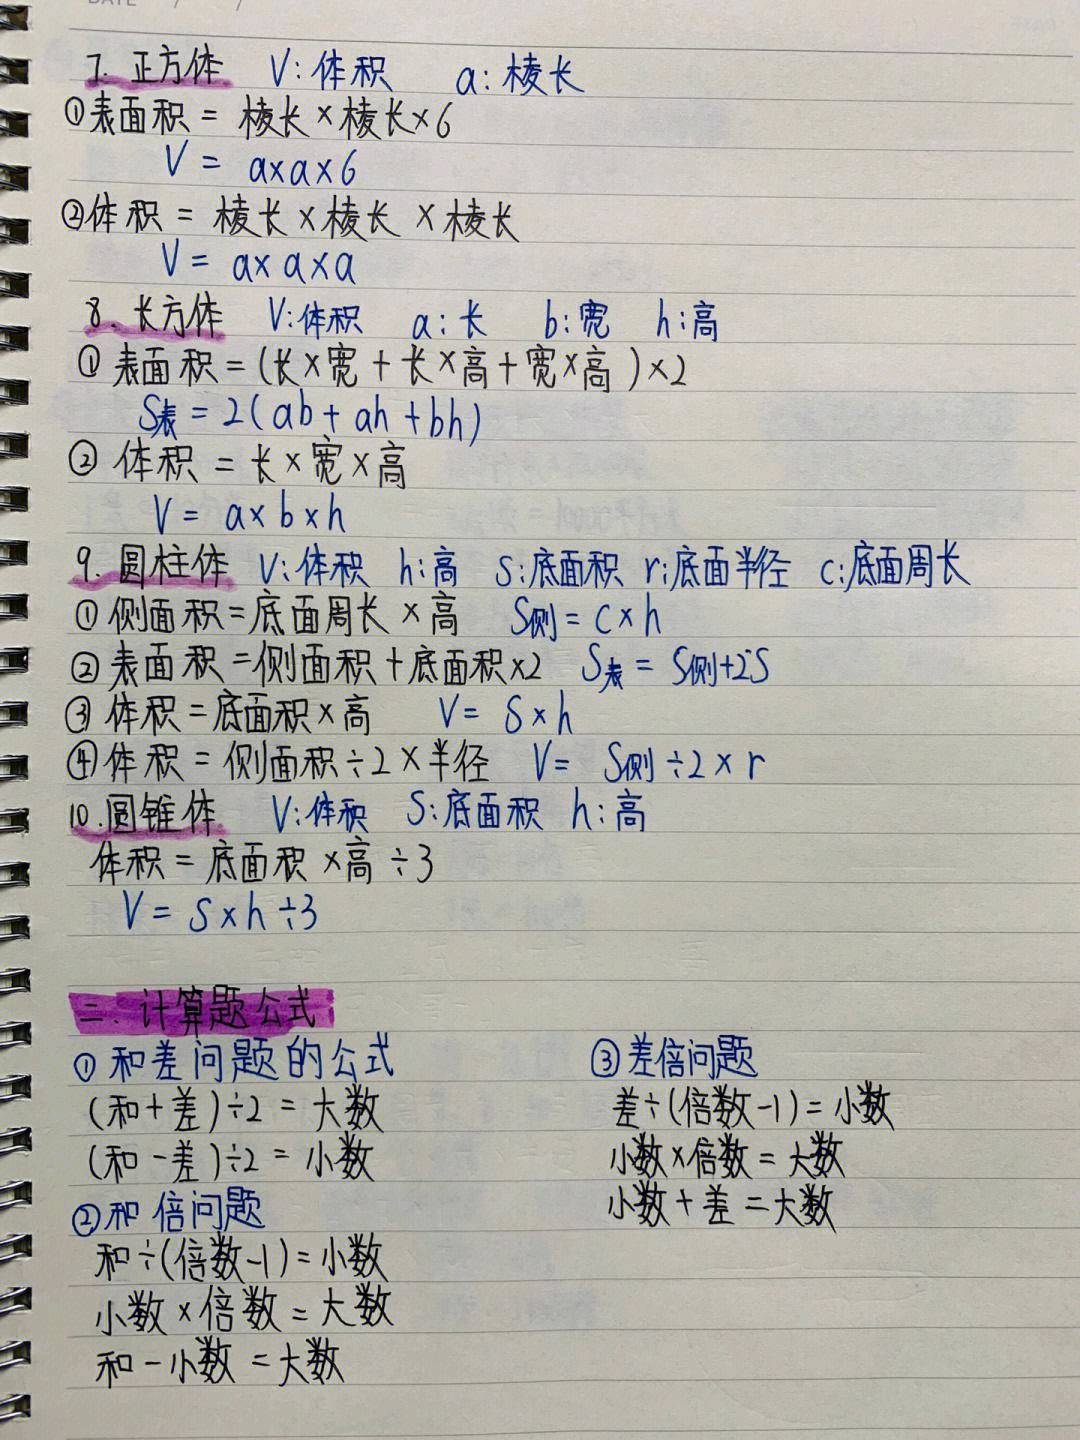 DATE / /
7. 正方体 V:体积 a:棱长
①表面积 = 棱长×棱长×6
V = a×a×6
②体积 = 棱长×棱长×棱长
V = a×a×a
8. 长方体 V:体积 a:长 b:宽 h:高
①表面积=(长×宽+长×高+宽×高)×2
S表 = 2(ab+ah+bh)
②体积 = 长×宽×高
V = a×b×h
9. 圆柱体 V:体积 h:高 S:底面积 r:底面半径 c:底面周长
①侧面积=底面周长×高 S侧 = c×h
②表面积=侧面积+底面积×2 S表 = S侧+2S
③体积=底面积×高 V = S×h
④体积=侧面积÷2×半径 V = S侧÷2×r
10.圆锥体 V:体积 S:底面积 h:高
体积 = 底面积×高÷3
V = S×h÷3
二.计算题公式
①和差问题的公式
(和+差)÷2 = 大数
(和-差)÷2 = 小数
②和倍问题
和÷(倍数-1)=小数
小数×倍数=大数
和-小数=大数
③差倍问题
差÷(倍数-1)=小数
小数×倍数=大数
小数+差=大数